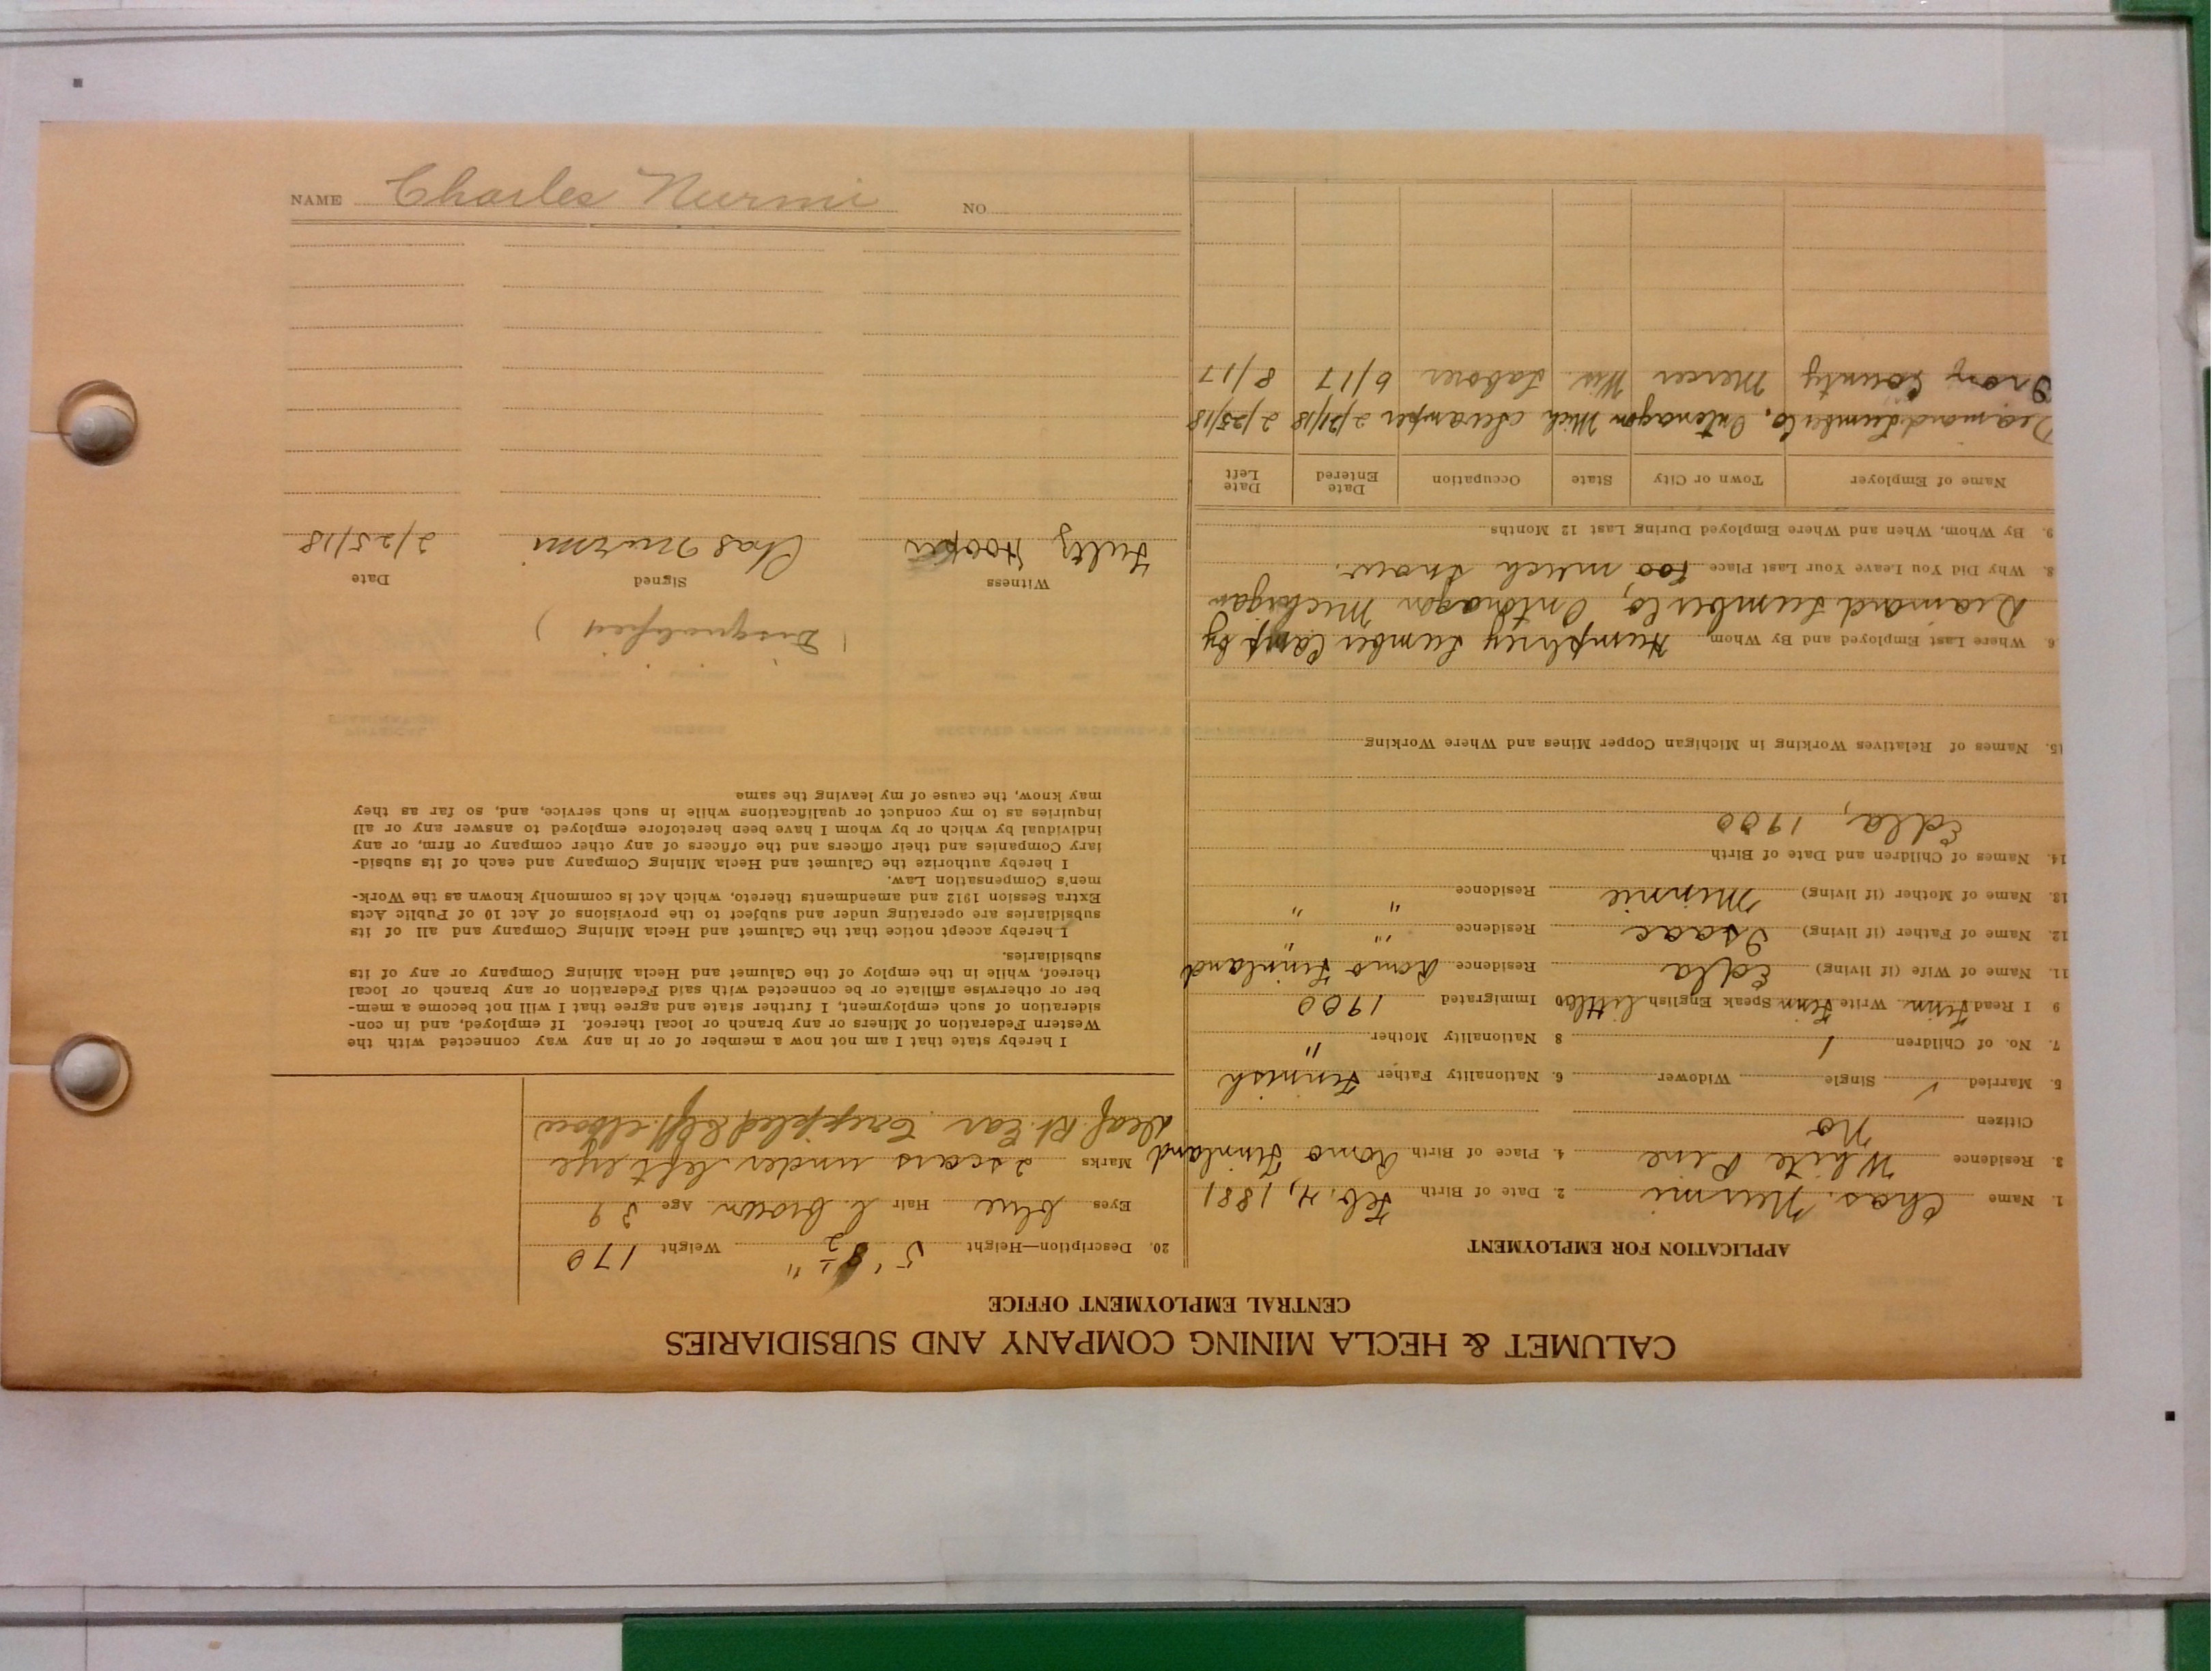 CALUMET & HECLA MINING COMPANY AND SUBSIDIARIES
CENTRAL EMPLOYMENT OFFICE
APPLICATION FOR EMPLOYMENT
1. Name Chas. Nurmi 2. Date of Birth Feb. 4, 1881
3. Residence White Pine 4. Place of Birth Finnland
Citizen No
5. Married ✓ Single Widower 6. Nationality Father Finnish
7. No. of Children 1 8 Nationality Mother "
9 I Read Finn. Write Finn Speak English Little Immigrated 1900
11. Name of Wife (if living) Edla Residence Finnland
12. Name of Father (if living) Isaac Residence " "
13. Name of Mother (if living) Minnie Residence " "
14. Names of Children and Date of Birth
Edla, 1900
15. Names of Relatives Working in Michigan Copper Mines and Where Working
6. Where Last Employed and By Whom Humphrey Lumber Camp by
Diamond Lumber Co, Ontonagon Michigan
8. Why Did You Leave Your Last Place Too much snow.
9. By Whom, When and Where Employed During Last 12 Months
Name of Employer Town or City State Occupation Date Entered Date Left
Diamond Lumber Co. Ontonagon Mich Swamper 2/21/18 2/25/18
Iron County Mercer Wis. Laborer 6/17 8/17
20. Description—Height 5' 8½" Weight 170
Eyes blue Hair l. brown Age 39
Marks 2 scars under left eye
Deaf Rt. Ear Crippled left elbow
I hereby state that I am not now a member of or in any way connected with the
Western Federation of Miners or any branch or local thereof. If employed, and in con-
sideration of such employment, I further state and agree that I will not become a mem-
ber or otherwise affiliate or be connected with said Federation or any branch or local
thereof, while in the employ of the Calumet and Hecla Mining Company or any of its
subsidiaries.
I hereby accept notice that the Calumet and Hecla Mining Company and all of its
subsidiaries are operating under and subject to the provisions of Act 10 of Public Acts
Extra Session 1912 and amendments thereto, which Act is commonly known as the Work-
men's Compensation Law.
I hereby authorize the Calumet and Hecla Mining Company and each of its subsid-
iary Companies and their officers and the officers of any other company or firm, or any
individual by which or by whom I have been heretofore employed to answer any or all
inquiries as to my conduct or qualifications while in such service, and, so far as they
may know, the cause of my leaving the same
(Disqualified)
Witness Signed Date
Hooper Chas Nurmi 2/25/18
NAME Charles Nurmi NO